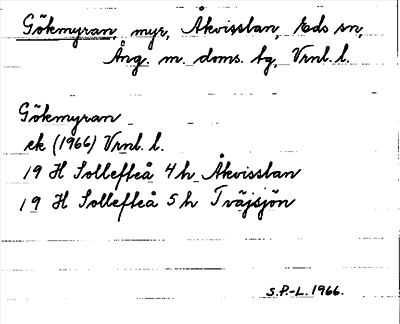 Gökmyran, myr, Åkvisslan, Eds sn,
Ång. m. doms. tg, Vrnl. l.
Gökmyran
ek (1966) Vrnl. l.
19 H Sollefteå 4h Åkvisslan
19 H Sollefteå 5h Tväjsjön
S.P.-L. 1966.